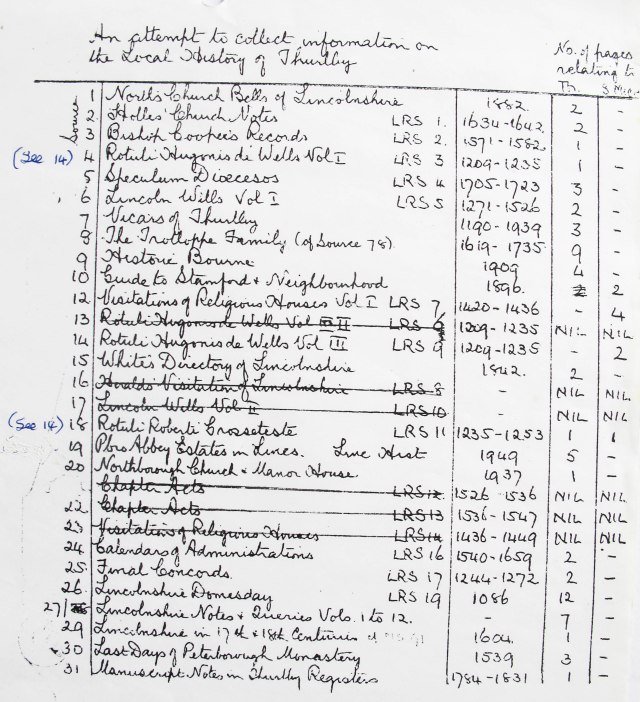 An attempt to collect information on
the Local History of Thurlby
No. of pages
relating to
Source Th.
1 North's Church Bells of Lincolnshire 1882 2 -
2 Holles' Church Notes LRS 1. 1634-1642 2 -
3 Bishop Cooper's Records LRS 2. 1571-1582 1 -
(See 14) 4 Rotuli Hugonis de Wells Vol I LRS 3 1209-1235 1 -
5 Speculum Dioecesos LRS 4 1705-1723 3 -
6 Lincoln Wills Vol I LRS 5 1271-1526 2 -
7 Vicars of Thurlby 1190-1939 3 -
8 The Trolloppe Family (of Source 78) 1619-1735 9 -
9 Historic Bourne 1909 4 -
10 Guide to Stamford & Neighbourhood 1896. 2
12 Visitations of Religious Houses Vol I LRS 7 1420-1436 - 4
13 Rotuli Hugonis de Wells Vol II LRS 6 1209-1235 NIL NIL
14 Rotuli Hugonis de Wells Vol III LRS 9 1209-1235 - 2
15 White's Directory of Lincolnshire 1842. 2 -
16 Visitation of Lincolnshire LRS 8 - NIL NIL
17 Lincoln Wills Vol II LRS 10 - NIL NIL
(See 14) 18 Rotuli Roberti Grosseteste LRS 11 1235-1253 1 1
19 Pbro Abbey Estates in Lincs. Linc Hist 1949 5 -
20 Northborough Church & Manor House. 1937 1 -
Chapter Acts LRS 12. 1526-1536 NIL NIL
22 Chapter Acts LRS 13 1536-1547 NIL NIL
23 Visitations of Religious Houses LRS 14 1436-1449 NIL NIL
24 Calendars of Administrations LRS 16 1540-1659 2 -
25 Final Concords. LRS 17 1244-1272 2 -
26. Lincolnshire Domesday LRS 19 1086 12 -
27/ Lincolnshire Notes & Queries Vols. 1 to 12. - 7 -
29 Lincolnshire in 17th & 18th Centuries 1604. 1 -
30 Last Days of Peterborough Monastery 1539 3 -
31 Manuscript Notes in Thurlby Registers 1784-1831 1 -